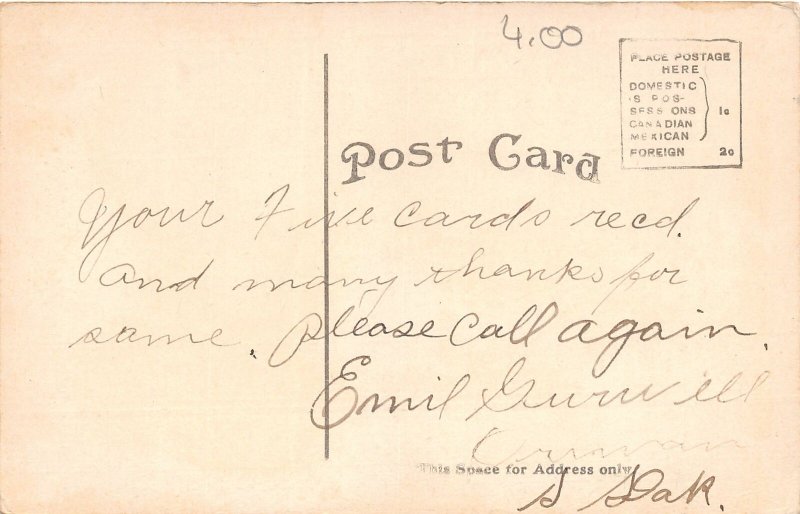 4.00
PLACE POSTAGE
HERE
DOMESTIC
'S POS-
SESS ONS
CANADIAN
MEXICAN
1c
FOREIGN 2c
Post Card
Your Five cards recd.
and many thanks for
same. please call again.
Emil
This Space for Address only
S Dak.